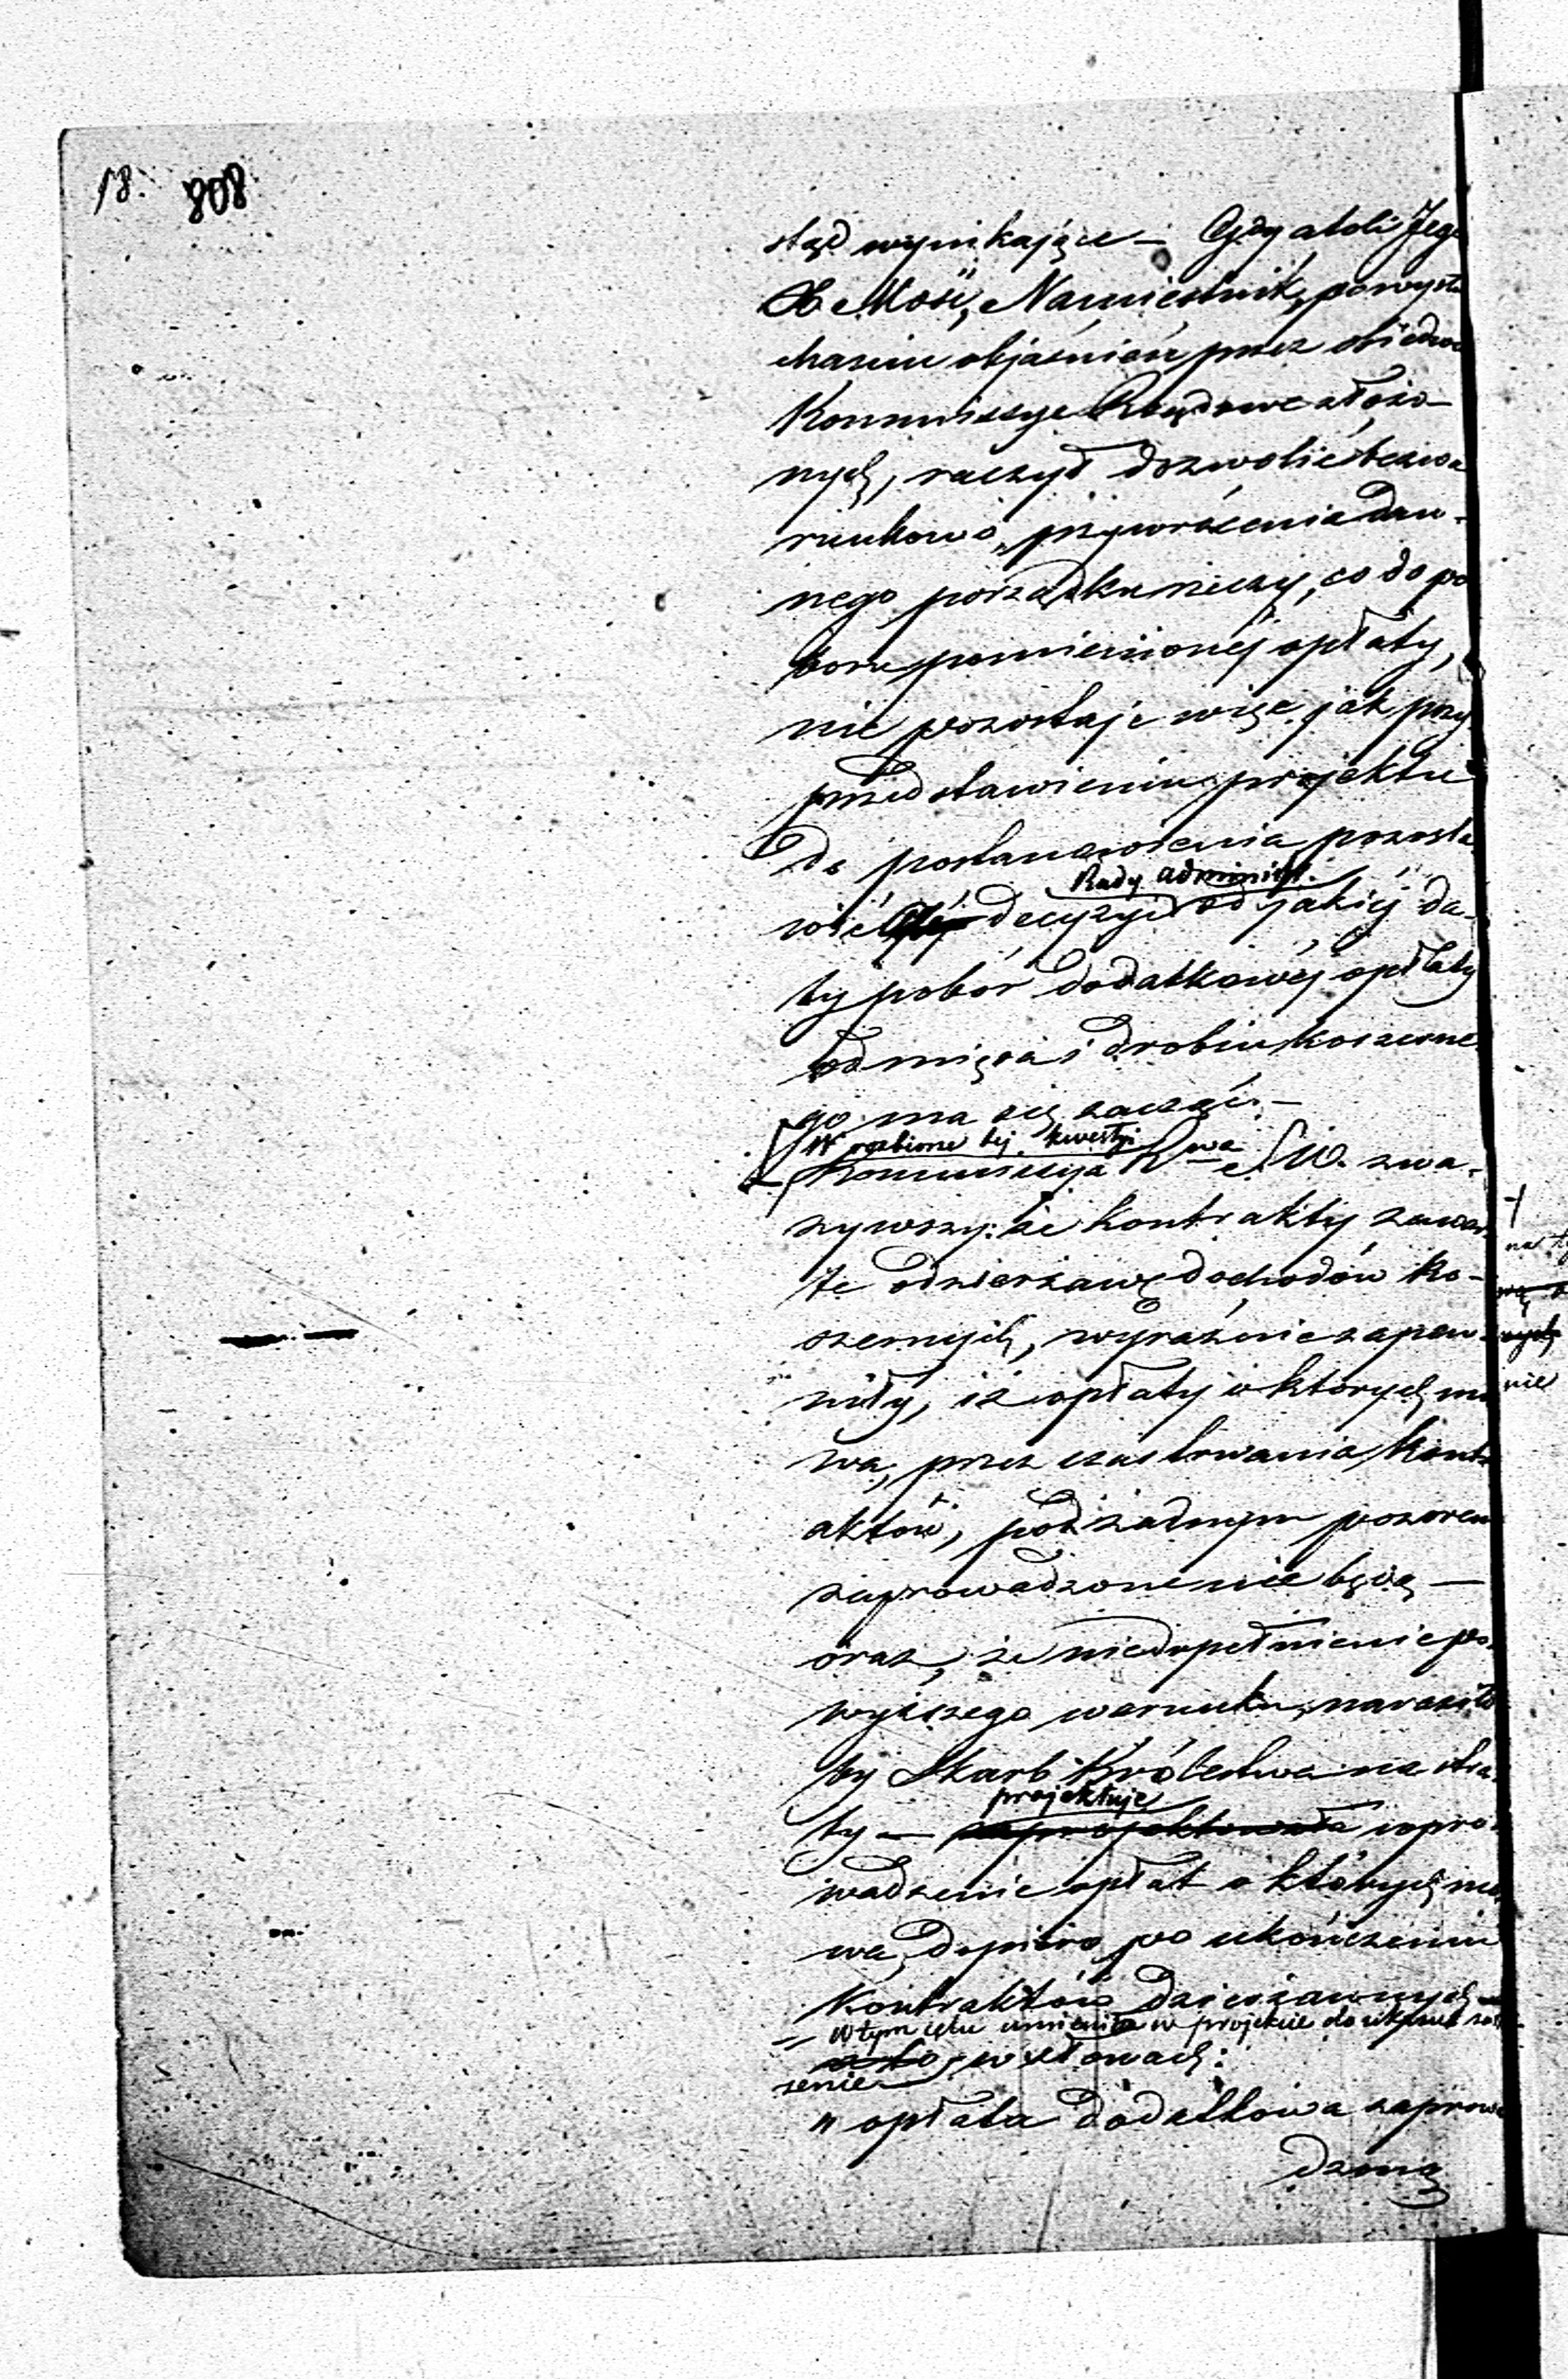 18. 808
stąd wynikające — Gdy atoli Jego
X Mość, Namiestnik, po wysłu
chaniu objaśnień przez obiedwie
Kommissye Rządowe złożo-
nych, raczył dozwolić bezwa
runkowo, przywrócenia daw-
nego porządku rzeczy, co do po
boru pomienionej opłaty,
nie pozostaje więc jak przy
przedstawieniu projektu
do postanowienia pozosta
Rady administ.
wić decyzyi od jakiej da-
ty pobór dodatkowej opłaty
od mięsa i drobiu koszerne
go ma się zacząć. —
W rozbiorze tej kwestyi
Kommissya Rwa S W. zwa-
żywszy: że kontrakty zawar
te o dzierżawę dochodów ko-
szernych, wyraźnie zapew-
niły, iż opłaty o których mo
wa, przez czas trwania kontr
aktów, pod żadnym pozorem
zaprowadzone nie będą —
oraz, że niedopełnienie po-
wyższego warunku, naraziło
by Skarb Królestwa na stra
projektuje
ty — zaprojektowała wpro-
wadzenie opłat o których mo
wa, dopiero po ukończeniu
Kontraktów dzierżawnych
w tym celu umieniła w projekcie do ukazu zastr
w słowach:
żenie
" opłata dodatkowa zaprowa
dzoną
nie